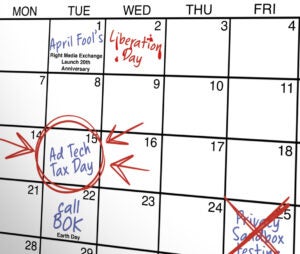 MON TUE WED THU FRI
1 2 3 4
April Fool's
Right Media Exchange
Launch 20th
Anniversary
Liberation
Day
7 8 9 10 11
14 15 16 17 18
Ad Tech
Tax Day
21 22 23 24 25
call
BOK
Earth Day
Privacy
Sandbox
Testing
28 29